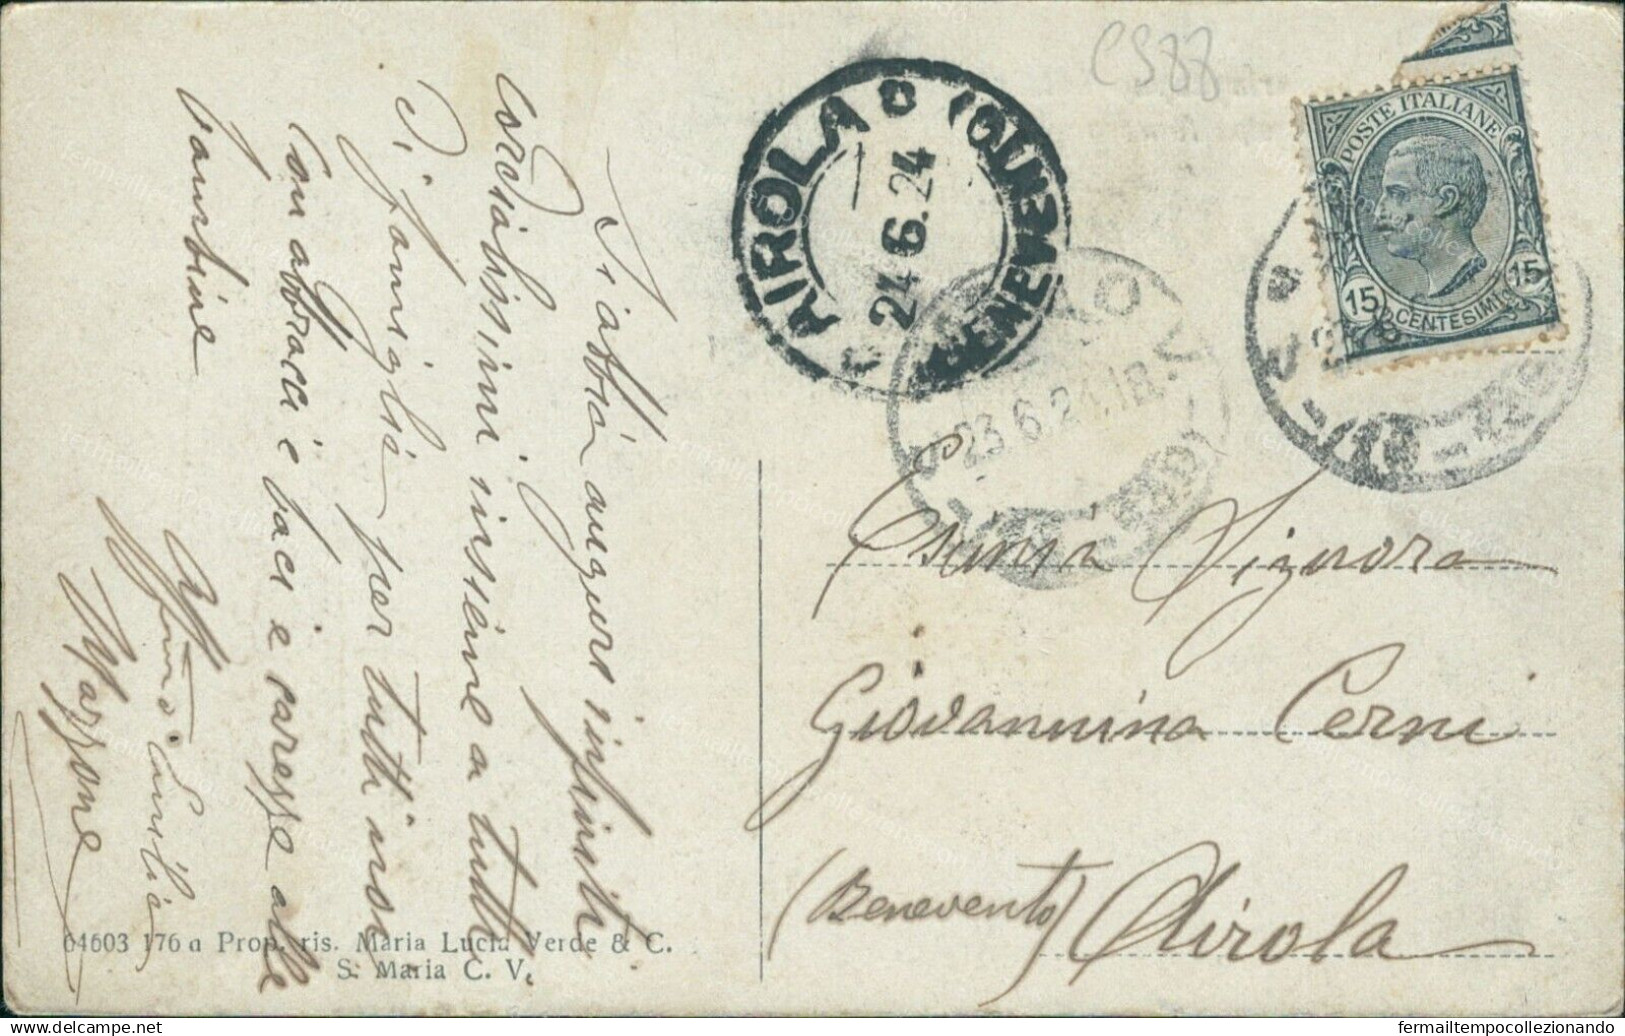 CS88
POSTE ITALIANE
15 CENTESIMI 15
AIROLA (BENEVENTO)
24.6.24
23.6.24.18
Si abbia auguri infiniti
cordialissimi insieme a tutti
di famiglia per tutti noi
Con abbracci e baci e carezze alle
bambine
Emilia
Mazzone
Esimia Signora
Giovannina Cerni
(Benevento) Airola
64603 176 a Prop. ris. Maria Lucia Verde & C.
S. Maria C. V.
fermailtempocollezionando